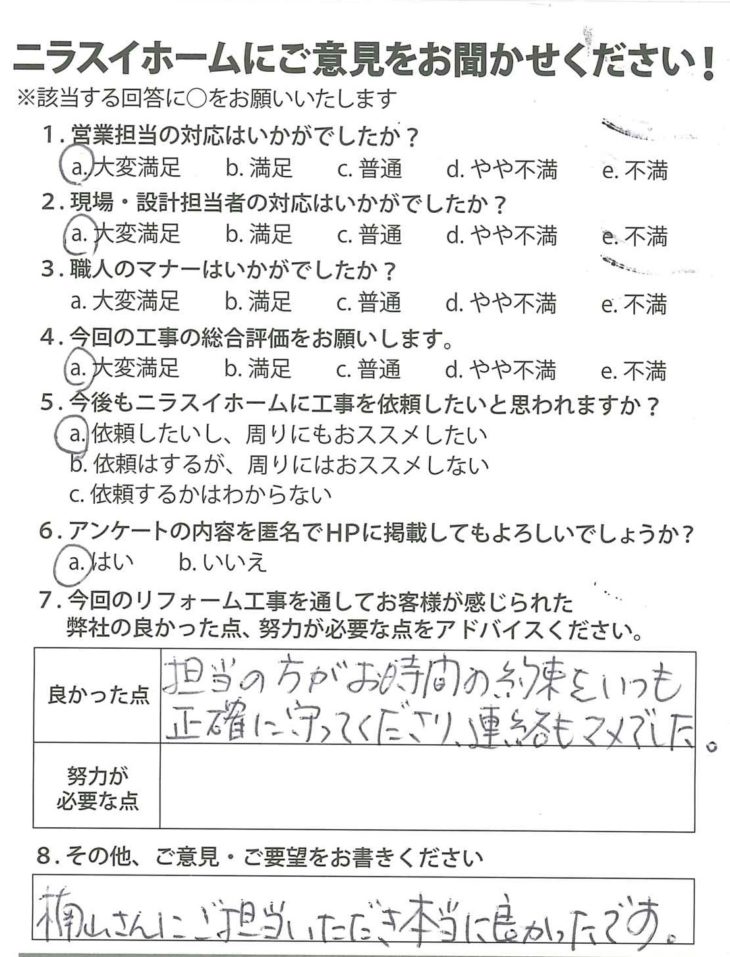 ニラスイホームにご意見をお聞かせください！
※該当する回答に○をお願いいたします
1. 営業担当の対応はいかがでしたか？
a. 大変満足 b. 満足 c. 普通 d. やや不満 e. 不満
2. 現場・設計担当者の対応はいかがでしたか？
a. 大変満足 b. 満足 c. 普通 d. やや不満 e. 不満
3. 職人のマナーはいかがでしたか？
a. 大変満足 b. 満足 c. 普通 d. やや不満 e. 不満
4. 今回の工事の総合評価をお願いします。
a. 大変満足 b. 満足 c. 普通 d. やや不満 e. 不満
5. 今後もニラスイホームに工事を依頼したいと思われますか？
a. 依頼したいし、周りにもおススメしたい
b. 依頼はするが、周りにはおススメしない
c. 依頼するかはわからない
6. アンケートの内容を匿名でHPに掲載してもよろしいでしょうか？
a. はい b. いいえ
7. 今回のリフォーム工事を通してお客様が感じられた
弊社の良かった点、努力が必要な点をアドバイスください。
良かった点
担当の方がお時間の約束をいつも
正確に守ってくださり、連絡もマメでした。
努力が
必要な点
8. その他、ご意見・ご要望をお書きください
山さんにご担当いただき本当に良かったです。